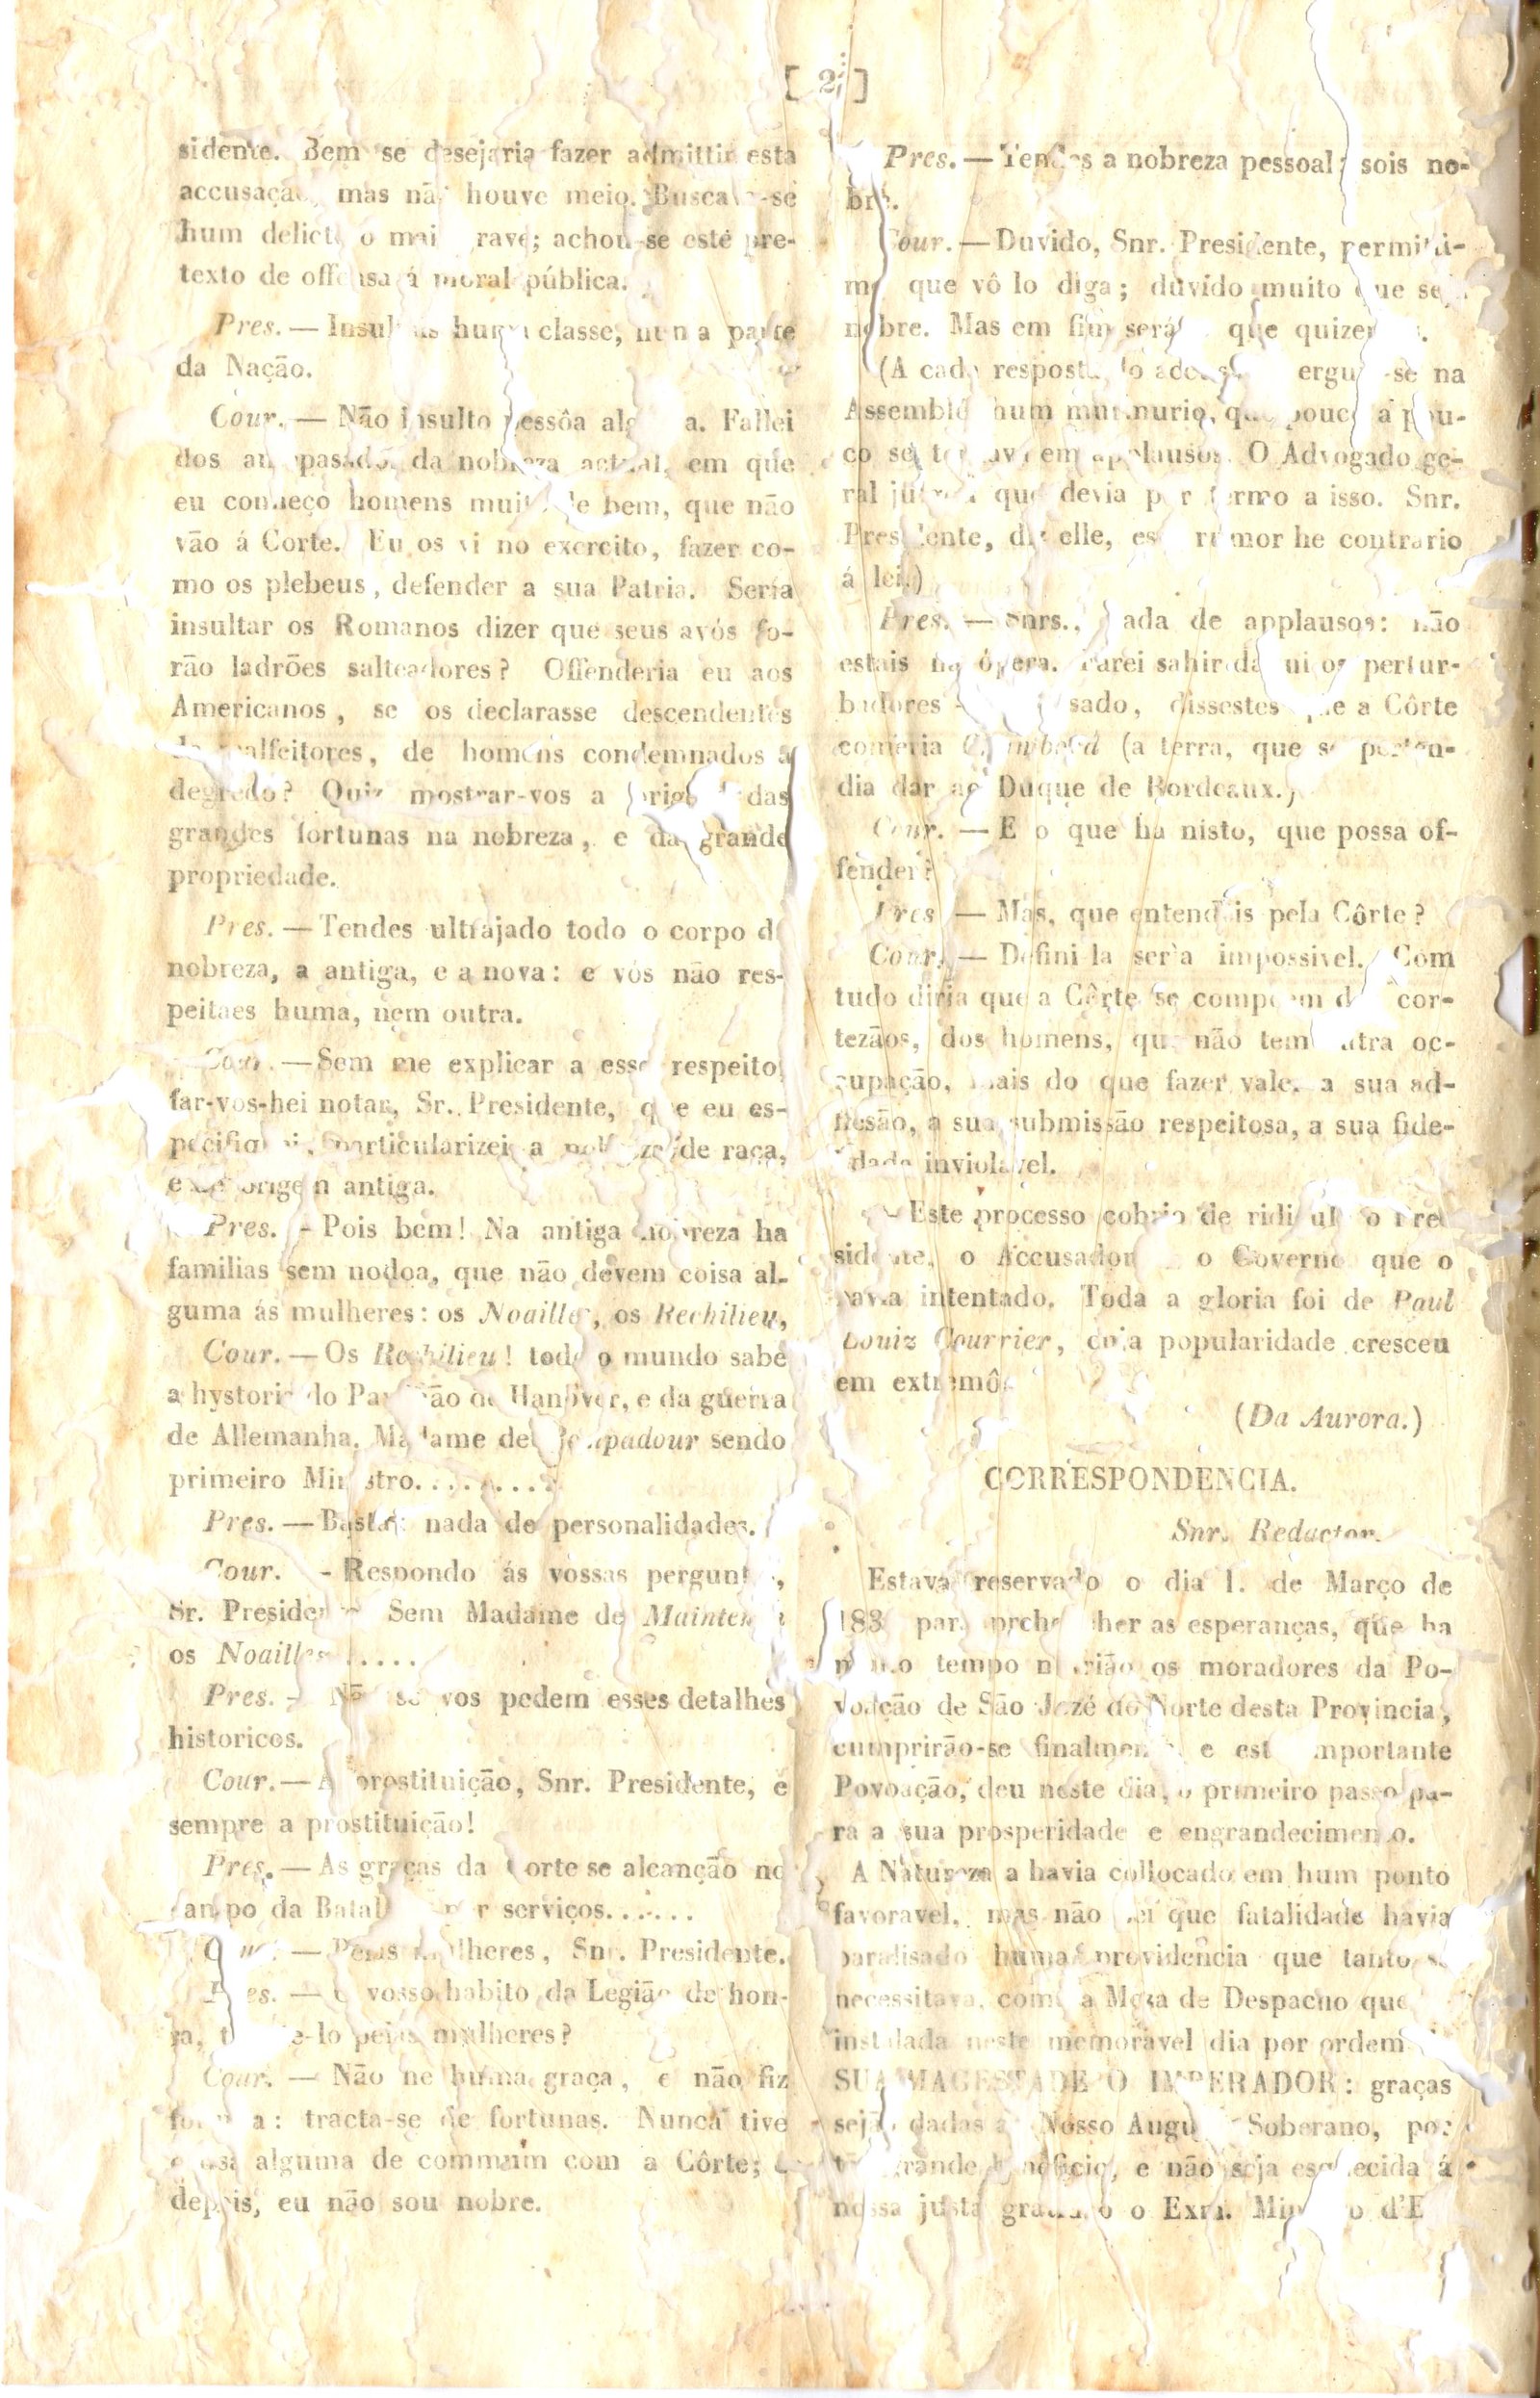 [ 2 ]
sidente. Bem se desejaria fazer admittir esta
accusação, mas não houve meio. Busca -se
hum delicto mai rave; achou-se este pre-
texto de offensa á moral pública.
Pres. — Insul huma classe, huma parte
da Nação.
Cour. — Não insulto pessôa al a. Fallei
dos antepasados da nobreza actual, em que
eu conheço homens muito de bem, que não
vão á Corte. Eu os vi no exercito, fazer co-
mo os plebeus, defender a sua Patria. Sería
insultar os Romanos dizer que seus avós fo-
rão ladrões salteadores? Offenderia eu aos
Americanos, se os declarasse descendentes
de malfeitores, de homens condemnados a
degredo? Quiz mostrar-vos a orig das
grandes fortunas na nobreza, e da grande
propriedade.
Pres. — Tendes ultrajado todo o corpo d
nobreza, a antiga, e a nova: e vós não res-
peitaes huma, nem outra.
Cour. — Sem me explicar a esse respeito
far-vos-hei notar, Sr. Presidente, que eu es-
pecifiq i, particularizei a nobreza de raça,
e origem antiga.
Pres. - Pois bem! Na antiga nobreza ha
familias sem nodoa, que não devem coisa al-
guma ás mulheres: os Noailles, os Rechilieu,
Cour. — Os Rechilieu! todo o mundo sabe
a hystoria do Pavilhão de Hanover, e da guerra
de Allemanha. Madame de Pompadour sendo
primeiro Ministro.........
Pres. — Basta: nada de personalidades.
Cour. - Respondo ás vossas pergunt ,
Sr. Presiden Sem Madame de Mainten
os Noailles.....
Pres. - Não se vos pedem esses detalhes
historicos.
Cour. — A prostituição, Snr. Presidente, é
sempre a prostituição!
Pres. — As graças da Corte se alcanção no
campo da Batal r serviços......
Cour. — Pelas mulheres, Snr. Presidente.
Pres. — O vosso habito da Legião de hon-
ra, t e-lo pelas mulheres?
Cour. — Não he huma graça, e não fiz
fortuna: tracta-se de fortunas. Nunca tive
cousa alguma de commum com a Côrte; e
depois, eu não sou nobre.
Pres. — Tendes a nobreza pessoal; sois no-
bre.
Cour. — Duvido, Snr. Presidente, permitti-
me que vô lo diga; duvído muito que seja
nobre. Mas em fim será que quizer .
(A cada resposta do accus ergu -se na
Assemblé hum murmurio, que pouco a pou-
co se tornava em applausos. O Advogado ge-
ral ju que devia pôr termo a isso. Snr.
Presidente, diz elle, es rumor he contrario
á lei.)
Pres. — Snrs., nada de applausos: não
estais na ópera. Farei sahir da ui os pertur-
badores sado, dissestes que a Côrte
comeria Chambord (a terra, que se perten-
dia dar ao Duque de Bordeaux.)
Cour. — E o que ha nisto, que possa of-
fender?
Pres. — Mas, que entendeis pela Côrte?
Cour. — Defini-la serìa impossivel. Com
tudo diria que a Côrte se compoem d cor-
tezãos, dos homens, que não tem outra oc-
cupação, mais do que fazer valer a sua ad-
hesão, a sua submissão respeitosa, a sua fide-
lidade inviolavel.
- Este processo cobrio de ridiculo o Pre-
sidente, o Accusador o Governo que o
havia intentado. Toda a gloria foi de Paul
Louiz Courrier, cuja popularidade cresceu
em extremô.
(Da Aurora.)
CORRESPONDENCIA.
Snr. Redactor.
Estava reservado o dia 1. de Março de
183 para prehe her as esperanças, que ha
muito tempo nutrião os moradores da Po-
voação de São Jozé do Norte desta Provincia,
cumprirão-se finalmen e est importante
Povoação, deu neste dia, o primeiro passo pa-
ra a sua prosperidade e engrandecimento.
A Natureza a havia collocado em hum ponto
favoravel, mas não sei que fatalidade havia
paralisado huma providencia que tanto s
necessitava, com a Meza de Despacho que
instalada neste memoravel dia por ordem
SUA MAGESTADE O IMPERADOR: graças
sejão dadas a Nosso Augu Soberano, por
tão grande beneficio, e não seja esquecida á
nossa justa gratidão o Exm. Mi o d'E